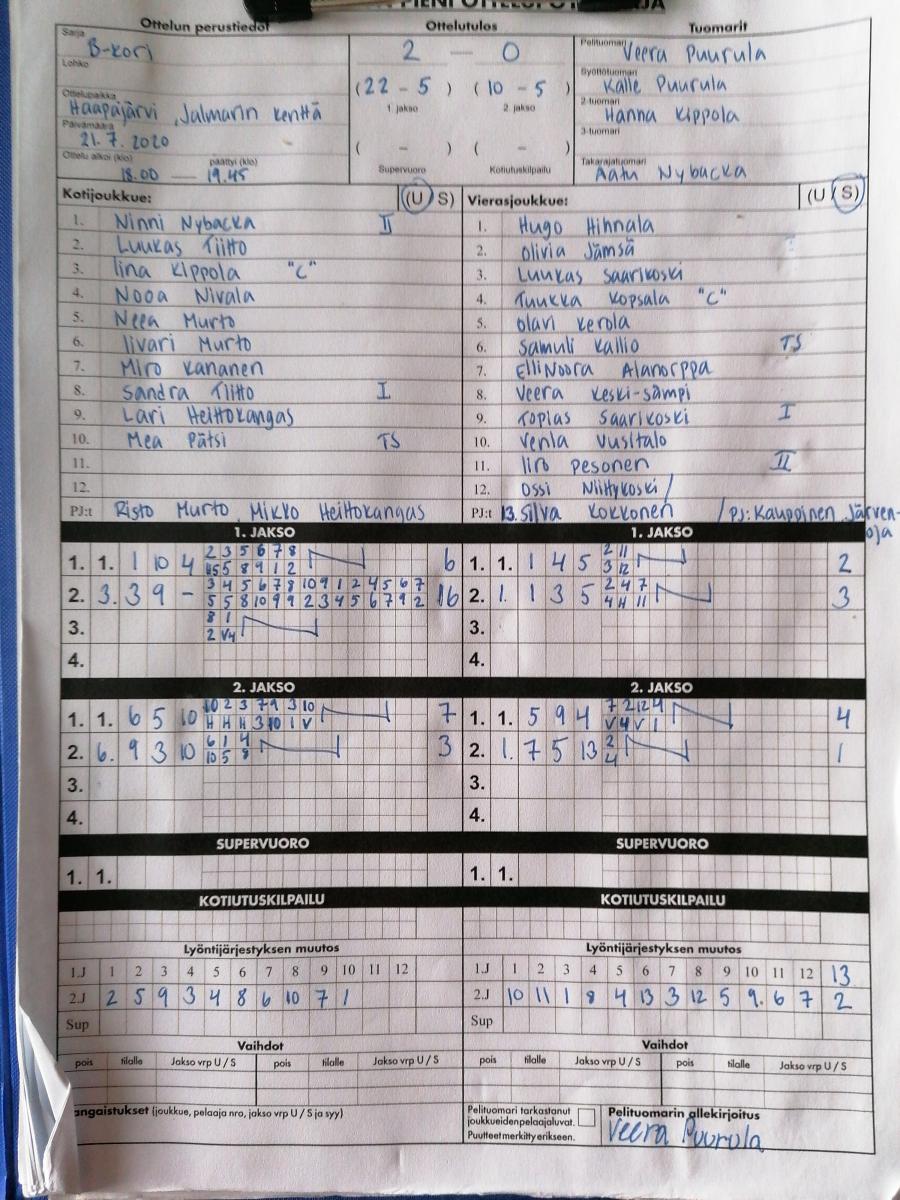 PIENI OTTELUPÖYTÄKIRJA
Ottelun perustiedot
Sarja
B-kori
Lohko
Ottelupaikka
Haapajärvi, Jalmarin kenttä
Päivämäärä
21.7.2020
Ottelu alkoi (klo) päättyi (klo)
18.00 — 19.45
Ottelutulos
2 — 0
(22 - 5) (10 - 5)
1. jakso 2. jakso
( - ) ( - )
Supervuoro Kotiutuskilpailu
Tuomarit
Pelituomari
Veera Puurula
Syöttötuomari
Kalle Puurula
2-tuomari
Hanna Kippola
3-tuomari
Takarajatuomari
Aatu Nybacka
Kotijoukkue: (U S)
1. Ninni Nybacka II
2. Luukas Tiitto
3. Iina Kippola "C"
4. Nooa Nivala
5. Neea Murto
6. Iivari Murto
7. Miro Kananen
8. Sandra Tiitto I
9. Lari Heittokangas
10. Mea Pätsi TS
11.
12.
PJ:t Risto Murto, Mikko Heittokangas
Vierasjoukkue: (U S)
1. Hugo Hihnala
2. Olivia Jämsä
3. Luukas Saarikoski
4. Tuukka Kopsala "C"
5. Olavi Kerola
6. Samuli Kallio TS
7. ElliNoora Alanorppa
8. Veera Keski-Sämpi
9. Topias Saarikoski I
10. Venla Uusitalo
11. Iiro Pesonen II
12. Ossi Niittykoski /
PJ:t 13. Silva Kokkonen / PJ: Kauppinen, Järven-
oja
1. JAKSO
1. 1. 1 10 4
2 3 5 6 7 8
5 8 9 1 2
6
2. 3. 3 9 -
3 4 5 6 7 8 10 9 1 2 4 5 6 7
5 5 8 10 9 9 2 3 4 5 6 7 9 2
16
3.
8 1
2 V4
4.
1. JAKSO
1. 1. 1 4 5
2 11
3 12
2
2. 1. 1 3 5
2 4 7
4 H 11
3
3.
4.
2. JAKSO
1. 1. 6 5 10
10 2 3 7 9 3 10
H H H 3 10 1 V
7
2. 6. 9 3 10
6 1 4
10 5 8
3
3.
4.
2. JAKSO
1. 1. 5 9 4
7 2 12 4
V V4 V 1
4
2. 1. 7 5 13
2
4
1
3.
4.
SUPERVUORO
1. 1.
SUPERVUORO
1. 1.
KOTIUTUSKILPAILU
KOTIUTUSKILPAILU
Lyöntijärjestyksen muutos
1.J 1 2 3 4 5 6 7 8 9 10 11 12
2.J 2 5 9 3 4 8 6 10 7 1
Sup
Lyöntijärjestyksen muutos
1.J 1 2 3 4 5 6 7 8 9 10 11 12 13
2.J 10 11 1 8 4 13 3 12 5 9. 6 7 2
Sup
Vaihdot
pois tilalle Jakso vrp U / S pois tilalle Jakso vrp U / S
Vaihdot
pois tilalle Jakso vrp U / S pois tilalle Jakso vrp U / S
angaistukset (joukkue, pelaaja nro, jakso vrp U / S ja syy)
Pelituomari tarkastanut
joukkueiden pelaajaluvat.
Puutteet merkitty erikseen.
Pelituomarin allekirjoitus
Veera Puurula